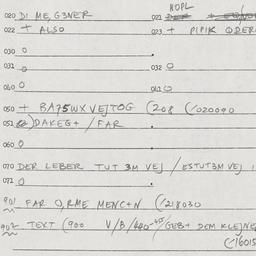 020 DI ME, G3NER 021 HOPL
022 + ALSO 023 + PIPIK
030 O
031 O 032 O
040 O 041 O
050 + BA75WX VEJTOG (208 (/020090
051 DAKEG+ /FAR
060 O
070 DER LEBER TUT 3M VEJ /ESTUT3M VEJ
071 O
901 FAR O,RME MENC+N (/218030
902 TEXT (900 V/B/ GEB+ DEM KLEJNE
(/6015